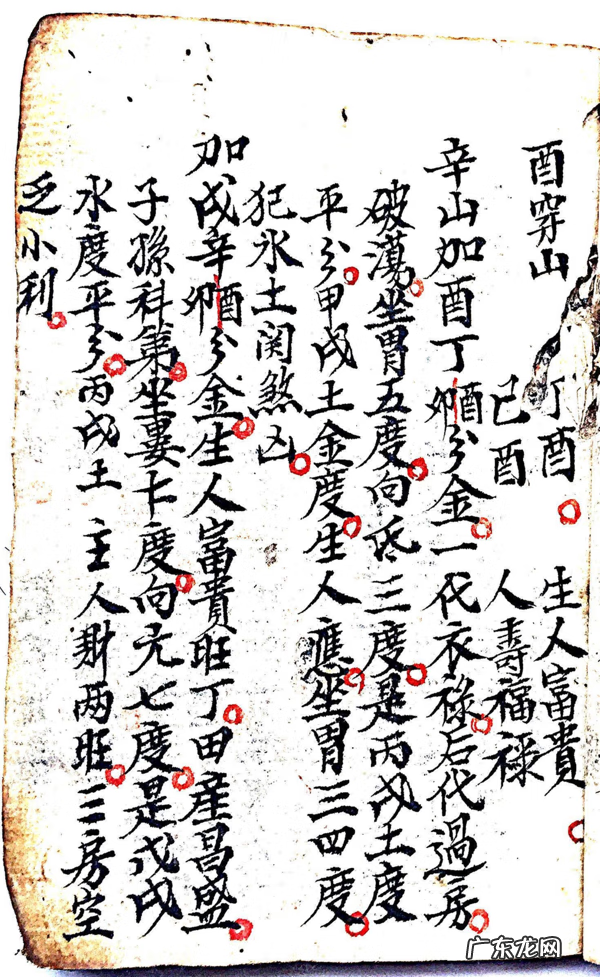 酉穿山
丁酉 生人富貴
己酉 人壽福祿
辛山加酉丁卯酉分金一代衣祿后代過房
破蕩坐胃五度向氐三度是丙戌土度
平分甲戌土金度生人應坐胃三四度
犯水土関煞凶
加戌辛卯酉分金生人富貴旺丁田產昌盛
子孫科第坐婁十度向亢七度是戊戌
水度平分丙戌土 主人財两旺三房空
乏小利
广东龙网